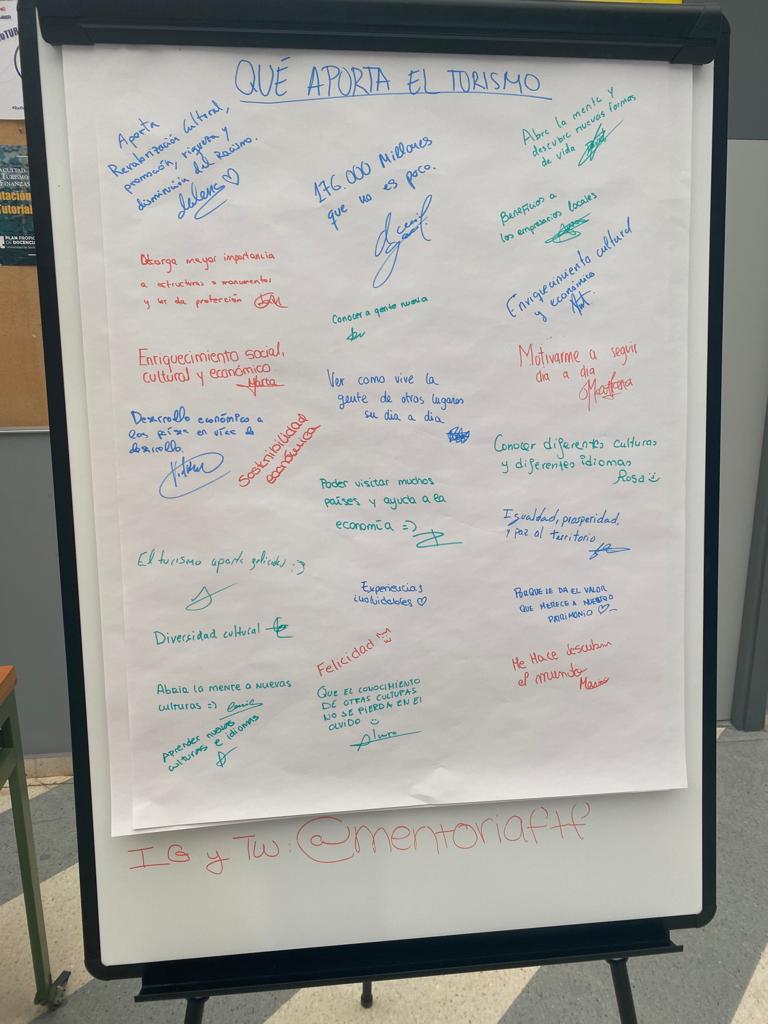 QUÉ APORTA EL TURISMO
Aporta
Revalorización Cultural,
promoción, riqueza y
disminución del Racismo.
176.000 Millones
que no es poco.
Abre la mente y
descubre nuevas formas
de vida
Beneficios a
los empresarios locales
Otorga mayor importancia
a estructuras o monumentos
y les da protección
Conocer a gente nueva
Enriquecimiento cultural
y económico
Enriquecimiento social,
cultural y económico.
Marta
Ver como vive la
gente de otros lugares
su dia a dia
Motivarme a seguir
dia a dia
Desarrollo económico a
los países en vías de
desarrollo.
Sostenibilidad
económica
Conocer diferentes culturas
y diferentes idiomas
Rosa
Poder visitar muchos
países y ayuda a la
economía =)
Igualdad, prosperidad,
y paz al territorio
El turismo aporta :)
Experiencias
inolvidables ♡
PORQUE LE DA EL VALOR
QUE MERECE A NUESTRO
PATRIMONIO ♡
Diversidad cultural
Felicidad
Me Hace descubrir
el mundo
Abrir la mente a nuevas
culturas =)
QUE EL CONOCIMIENTO
DE OTRAS CULTURAS
NO SE PIERDA EN EL
OLVIDO
Alvaro
Aprender nuevas
culturas e idiomas
IG y TW: @mentoriaftf
PLAN PROPIO
DE DOCENCIA